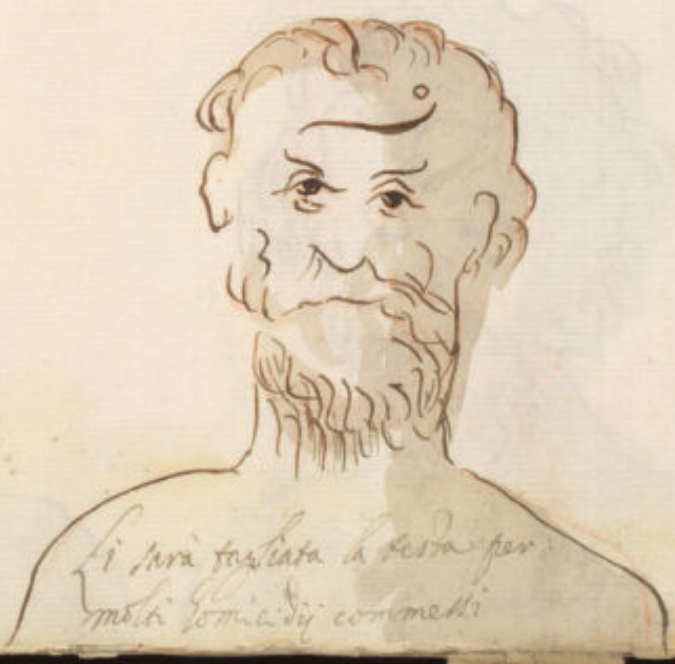 Li sarà tagliata la testa per
molti homicidij commessi